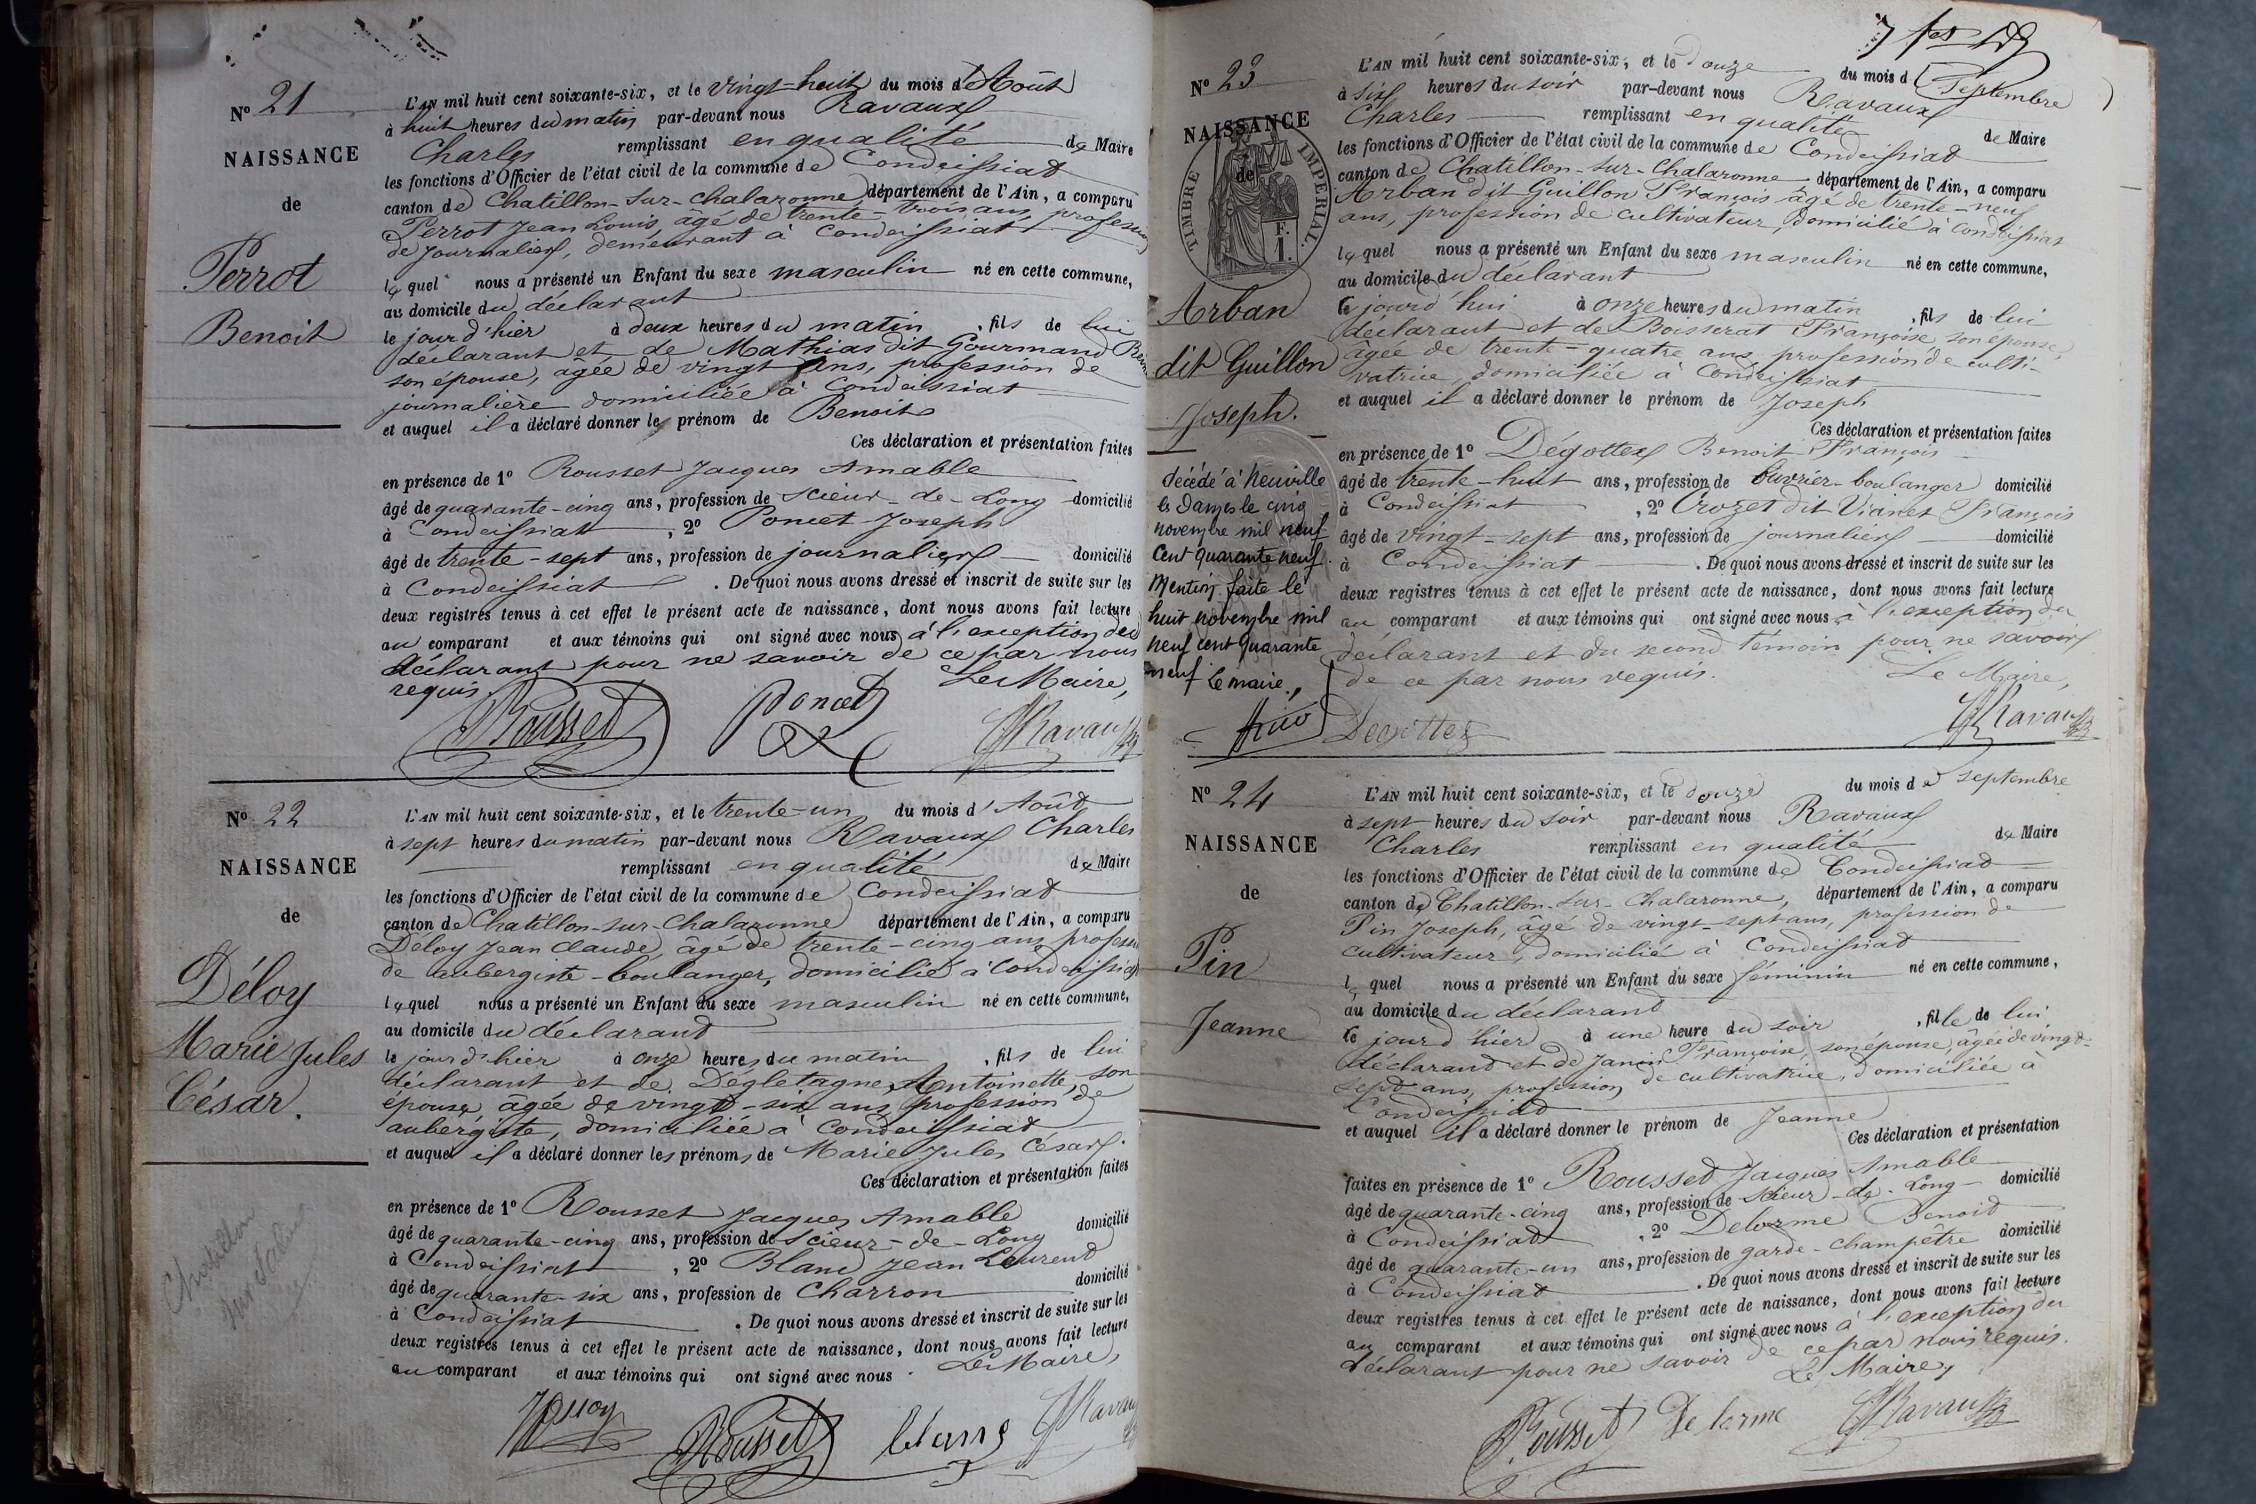 No 21
NAISSANCE
de
Perrot
Benoit
L'AN mil huit cent soixante-six, et le vingt-huit du mois d'Août
à huit heures du matin par-devant nous Ravaux
Charles remplissant en qualité de Maire
les fonctions d'Officier de l'état civil de la commune de Condeissiat
canton de Chatillon-sur-Chalaronne, département de l'Ain, a comparu
Perrot Jean Louis, âgé de trente-trois ans, profession
de journalier, demeurant à Condeissiat
lequel nous a présenté un Enfant du sexe masculin né en cette commune,
au domicile du déclarant
le jour d'hier à deux heures du matin, fils de lui
déclarant et de Mathias dit Gourmand
son épouse, âgée de vingt ans, profession de
journalière domiciliée à Condeissiat
et auquel il a déclaré donner le prénom de Benoit
Ces déclaration et présentation faites
en présence de 1o Rousset Jacques Amable
âgé de quarante-cinq ans, profession de scieur-de-Long domicilié
à Condeissiat, 2o Poncet Joseph
âgé de trente-sept ans, profession de journalier domicilié
à Condeissiat. De quoi nous avons dressé et inscrit de suite sur les
deux registres tenus à cet effet le présent acte de naissance, dont nous avons fait lecture
au comparant et aux témoins qui ont signé avec nous à l'exception du
déclarant pour ne savoir de ce par nous
requis. Le Maire,
Rousset Poncet Ravaux
No 22
NAISSANCE
de
Déloy
Marie Jules
César.
Chatillon
L'AN mil huit cent soixante-six, et le trente-un du mois d'Août
à sept heures du matin par-devant nous Ravaux Charles
remplissant en qualité de Maire
les fonctions d'Officier de l'état civil de la commune de Condeissiat
canton de Chatillon-sur-Chalaronne département de l'Ain, a comparu
Déloy Jean Claude, âgé de trente-cinq ans, profession
de aubergiste-boulanger, domicilié à Condeissiat
lequel nous a présenté un Enfant du sexe masculin né en cette commune,
au domicile du déclarant
le jour d'hier à onze heures du matin, fils de lui
déclarant et de Dégletagne Antoinette, son
épouse âgée de vingt-six ans, profession de
aubergiste, domiciliée à Condeissiat
et auquel il a déclaré donner les prénoms de Marie Jules César.
Ces déclaration et présentation faites
en présence de 1o Rousset Jacques Amable
âgé de quarante-cinq ans, profession de scieur-de-Long domicilié
à Condeissiat, 2o Blanc Jean Laurent
âgé de quarante-six ans, profession de Charron domicilié
à Condeissiat. De quoi nous avons dressé et inscrit de suite sur les
deux registres tenus à cet effet le présent acte de naissance, dont nous avons fait lecture
au comparant et aux témoins qui ont signé avec nous. Le Maire,
Rousset blanc Ravaux
No 23
NAISSANCE
de
TIMBRE IMPERIAL.
F.
1.
Arban
dit Guillon
Joseph.
décédé à Neuville
les Dames le cinq
novembre mil neuf
cent quarante neuf.
Mention faite le
huit novembre mil
neuf cent quarante
neuf Le maire,
L'AN mil huit cent soixante-six, et le douze du mois de Septembre
à six heures du soir par-devant nous Ravaux
Charles remplissant en qualité de Maire
les fonctions d'Officier de l'état civil de la commune de Condeissiat
canton de Chatillon-sur-Chalaronne département de l'Ain, a comparu
Arban dit Guillon François âgé de trente-neuf
ans, profession de cultivateur, domicilié à Condeissiat
lequel nous a présenté un Enfant du sexe masculin né en cette commune,
au domicile du déclarant
ce jourd'hui à onze heures du matin, fils de lui
déclarant et de Boisserat Françoise son épouse,
âgée de trente-quatre ans, profession de culti-
vatrice, domiciliée à Condeissiat
et auquel il a déclaré donner le prénom de Joseph
Ces déclaration et présentation faites
en présence de 1o Dégottex Benoit François
âgé de trente-huit ans, profession de Ouvrier-boulanger domicilié
à Condeissiat, 2o Crozet dit Vianet François
âgé de vingt-sept ans, profession de journalier domicilié
à Condeissiat. De quoi nous avons dressé et inscrit de suite sur les
deux registres tenus à cet effet le présent acte de naissance, dont nous avons fait lecture
au comparant et aux témoins qui ont signé avec nous à l'exception du
déclarant et du second témoin pour ne savoir
de ce par nous requis. Le Maire,
Degottex Ravaux
No 24
NAISSANCE
de
Pin
Jeanne
L'AN mil huit cent soixante-six, et le douze du mois de septembre
à sept heures du soir par-devant nous Ravaux
Charles remplissant en qualité de Maire
les fonctions d'Officier de l'état civil de la commune de Condeissiat
canton de Chatillon-sur-Chalaronne, département de l'Ain, a comparu
Pin Joseph, âgé de vingt-sept ans, profession de
cultivateur, domicilié à Condeissiat
lequel nous a présenté un Enfant du sexe féminin né en cette commune,
au domicile du déclarant
le jour d'hier à une heure du soir, fille de lui
déclarant et de Janin Françoise, son épouse, âgée de vingt-
sept ans, profession de cultivatrice, domiciliée à
Condeissiat
et auquel il a déclaré donner le prénom de Jeanne
Ces déclaration et présentation
faites en présence de 1o Rousset Jacques Amable
âgé de quarante-cinq ans, profession de scieur-de-Long domicilié
à Condeissiat, 2o Delorme Benoit
âgé de quarante-un ans, profession de garde-champêtre domicilié
à Condeissiat. De quoi nous avons dressé et inscrit de suite sur les
deux registres tenus à cet effet le présent acte de naissance, dont nous avons fait lecture
au comparant et aux témoins qui ont signé avec nous à l'exception du
déclarant pour ne savoir de ce par nous requis.
Le Maire,
Rousset Delorme Ravaux